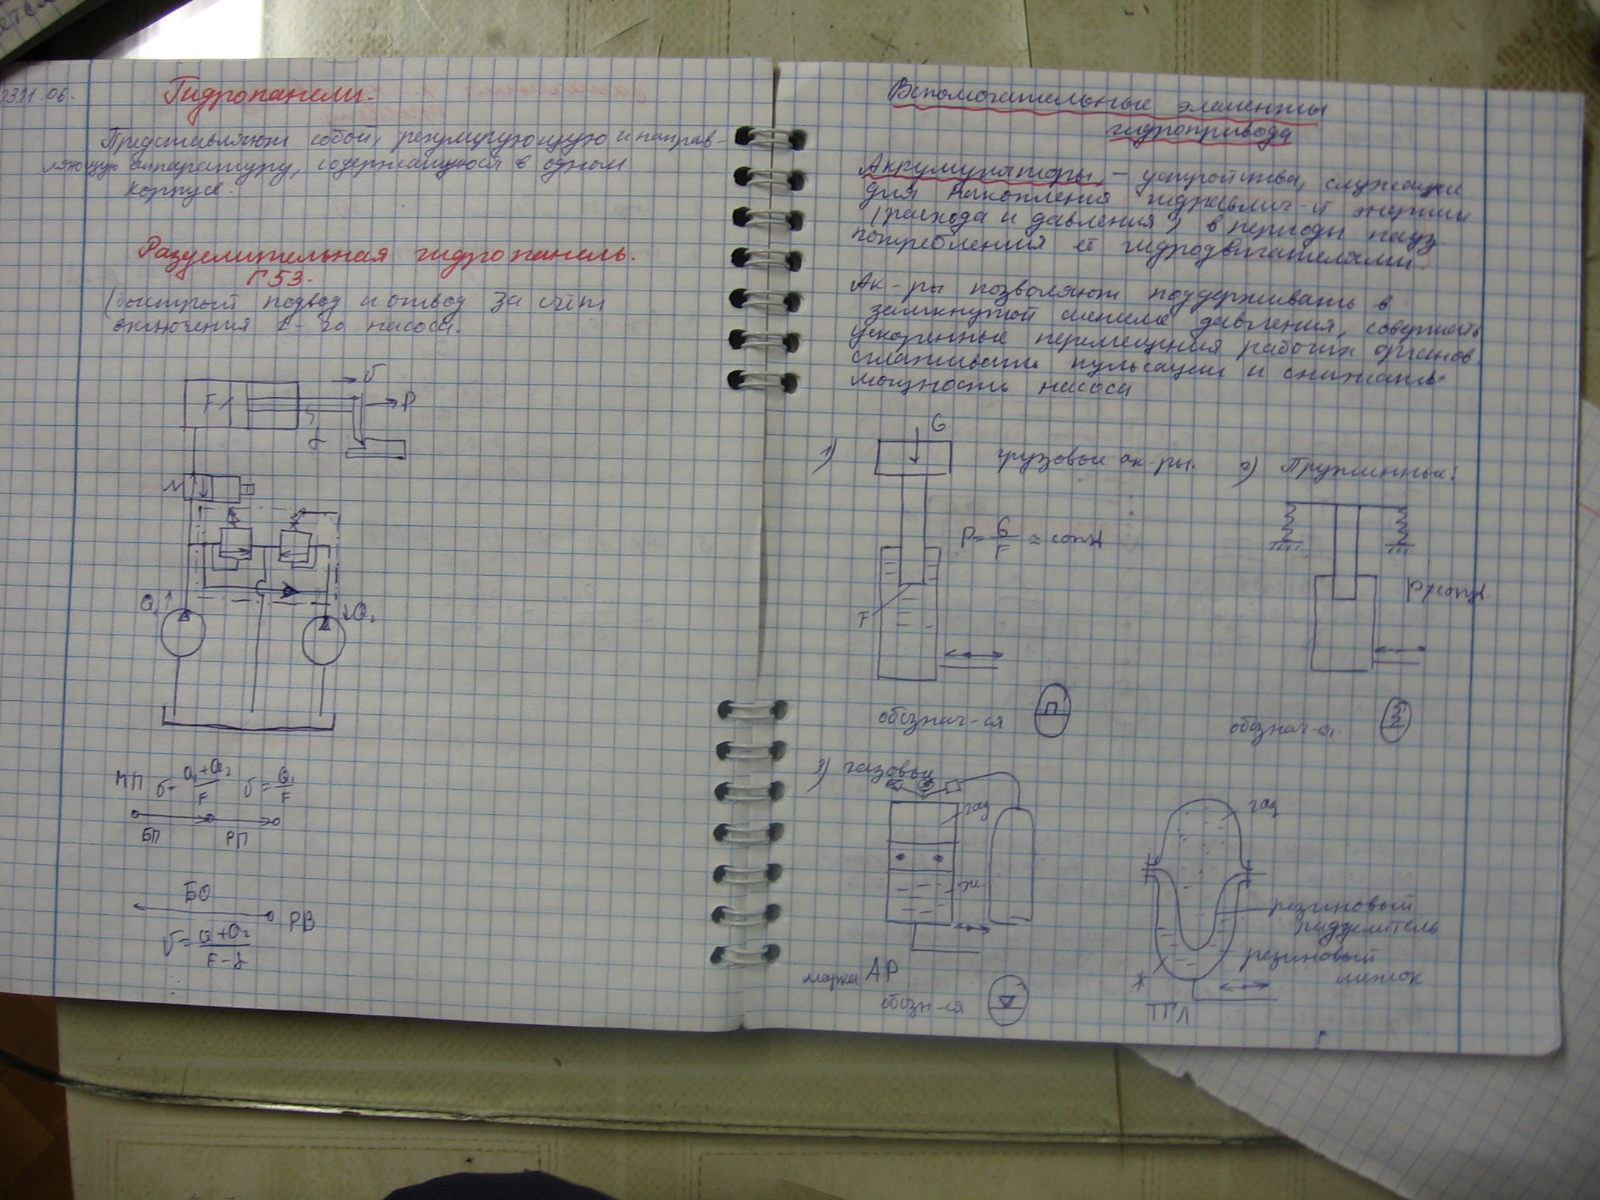 Гидропанели.
Представляют собой, регулирующую и направ-
ляющую аппаратуру, содержащуюся в одном
корпусе.
Разделительная гидропанель.
Г53.
(быстрый подвод и отвод за счёт
включения 2-го насоса.
F
υ
P
f
Q₁
Q₂
υ = Q₁+Q₂/F υ = Q₁/F
БП РП
БО
РВ
υ = Q+Q₂/F-f
Вспомогательные элементы
гидропривода
Аккумуляторы, – устройства, служащие
для накопления гидравлич-й энергии
(расхода и давления) в периоды пауз
потребления её гидродвигателями.
Ак-ры позволяют поддерживать в
замкнутой давления, совершать
ускоренные перемещения рабочих органов
сглаживать пульсации и снижать
мощность насоса
1)
G
грузовые ак-ры.
2) Пружинные:
P = G/F = const
F
P≠const.
обознач-ся
обознач-ся
3) газовые
газ
ж.
газ
резиновый
разделитель
резиновый
мешок
ж
марка АР
обозн-ся